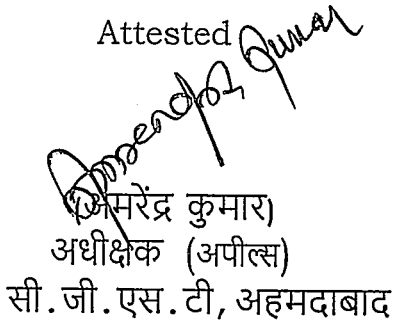 Attested
Amrendra Kumar
(अमरेंद्र कुमार)
अधीक्षक (अपील्स)
सी.जी.एस.टी,अहमदाबाद